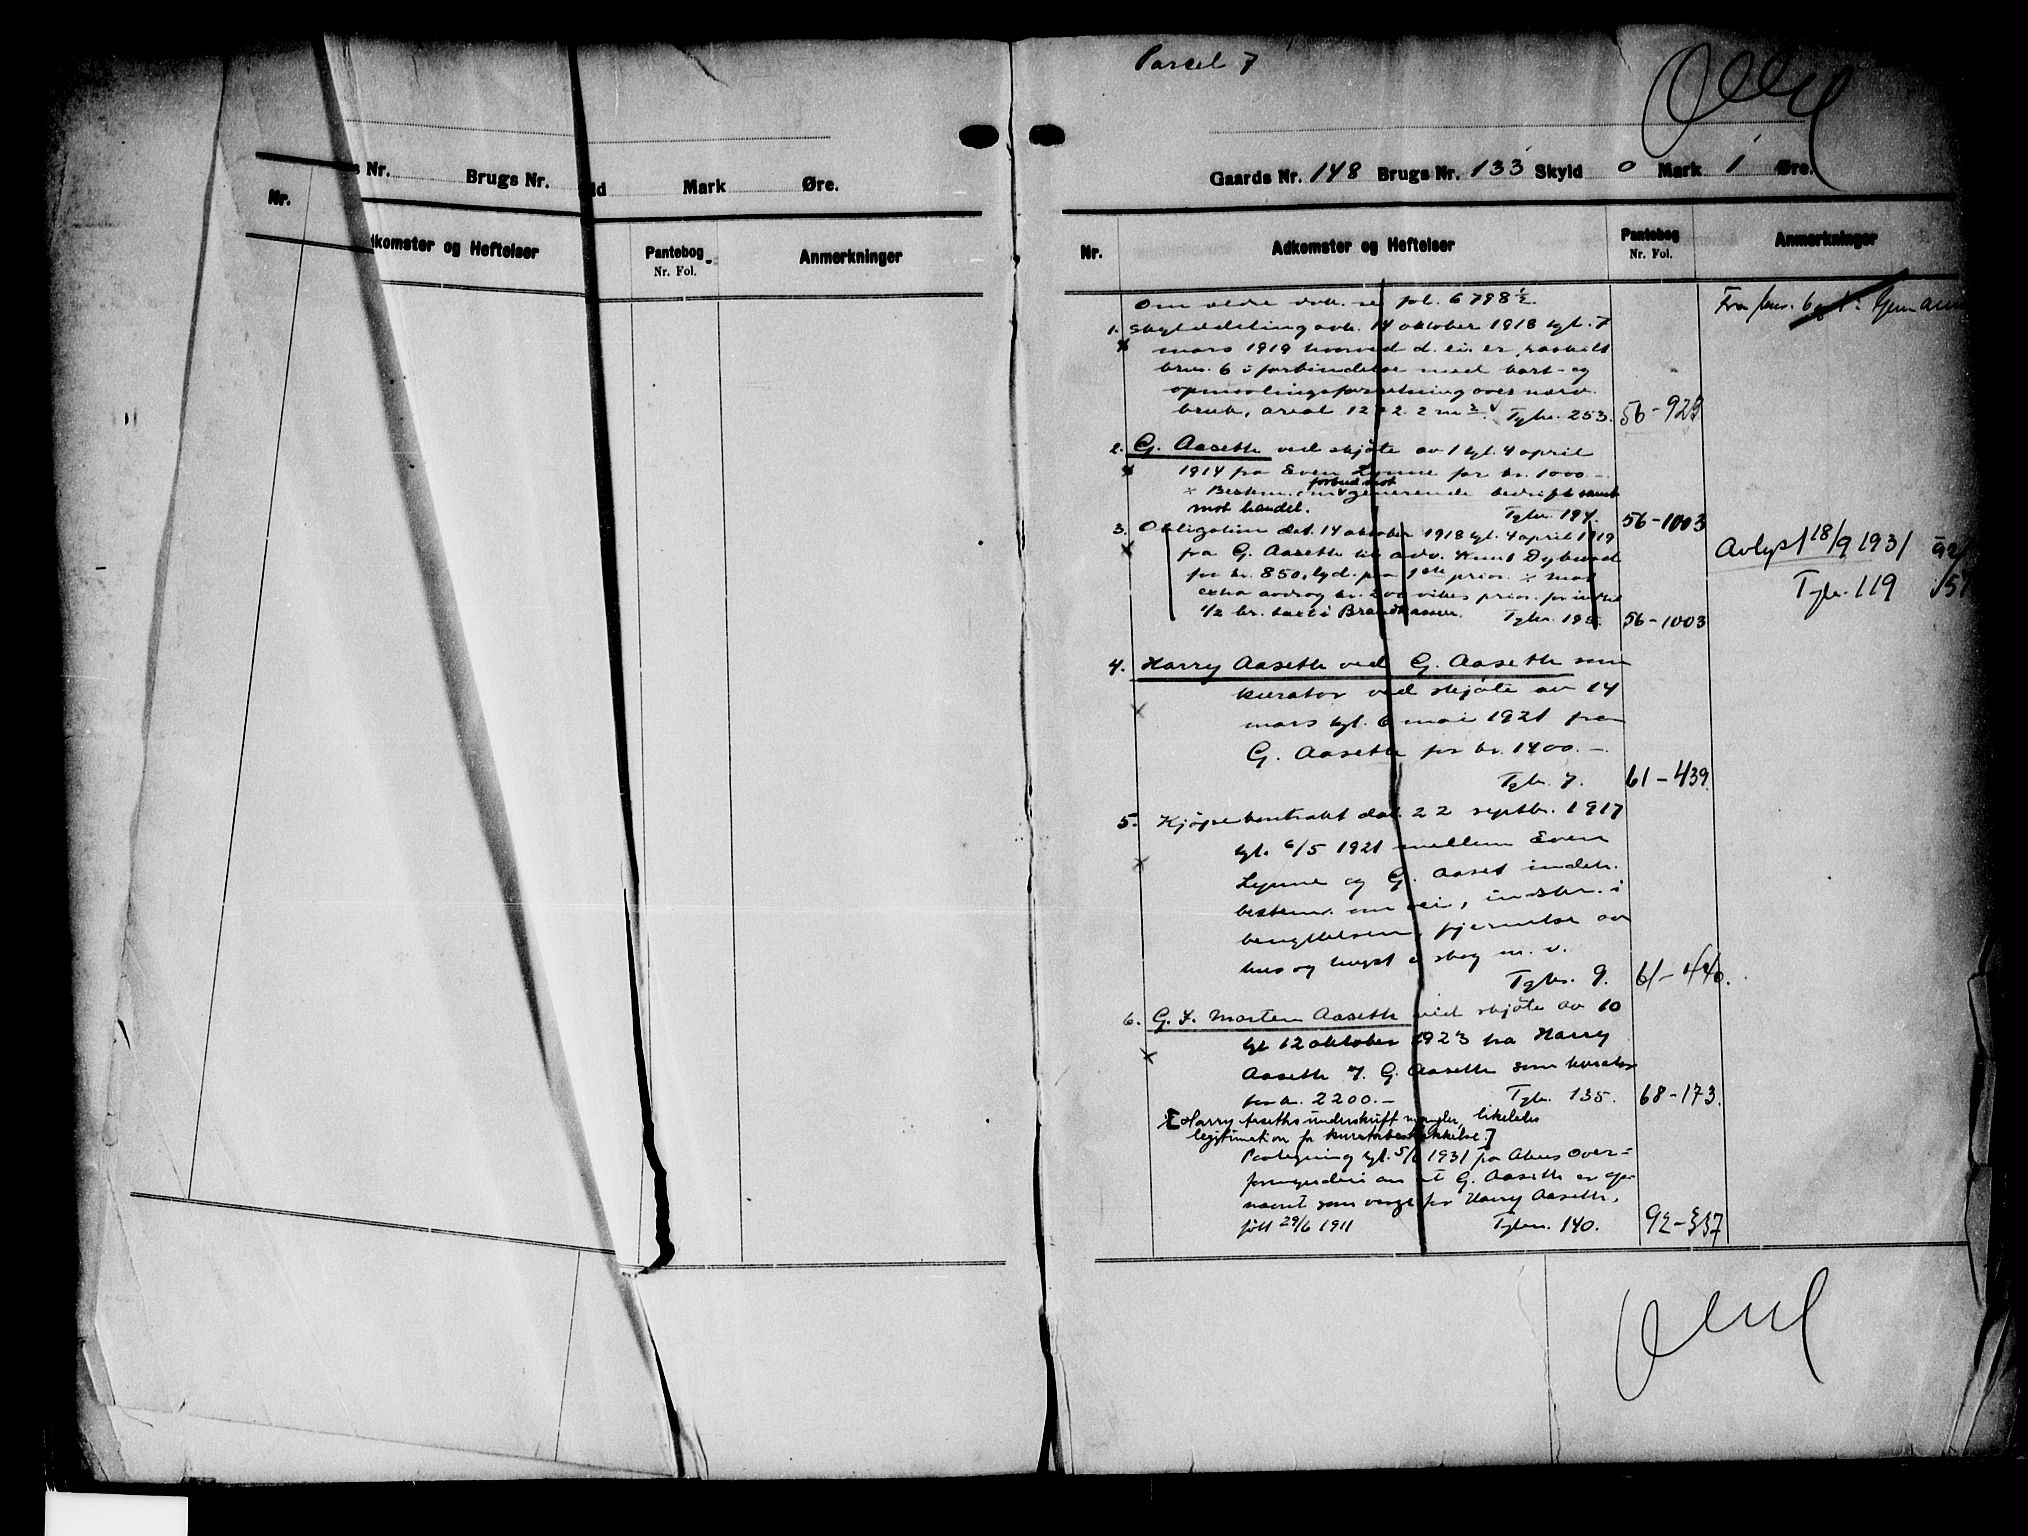 s Nr. Brugs Nr. ld Mark Øre.
Nr. dkomster og Heftelser Pantebog Nr. Fol. Anmerkninger
Parcel 7
Gaards Nr. 148 Brugs Nr. 133 Skyld 0 Mark 1 Øre.
Nr. Adkomster og Heftelser Pantebog Nr. Fol. Anmerkninger
Om eldre dok. se fol. 6798½
Fra brs. 6
1. Skylddeling avh. 14 oktober 1918 tgl. 7
mars 1919 hvorved d. ei. er fraskilt
brs. 6 i forbindelse med kart- og
opmaalingsforretning over nærv.
bruk, areal 1222.2 m². Tgbr. 253. 56-929
2. G. Aaseth ved skjøte av 1 tgl. 4 april
1914 fra Even Lynne for kr. 1000.-
÷ Bestem. om forbud mot generende bedrift samt
mot handel. Tgbr. 194. 56-1003
3. Obligation dat. 14 oktober 1918 tgl. 4 april 1919
fra G. Aaseth til adv. Knut Dybwad
for kr. 850, lyd. paa 1ste prior. ÷ mot
extra avdrag kr. 200 vikes prior. for indtil
1/2 br. takt i Brandkassen. Tgbr. 195. 56-1003
Avlyst 18/9 1931
Tgbr. 119
4. Harry Aaseth ved G. Aaseth som
kurator ved skjøte av 14
mars tgl. 6 mai 1921 fra
G. Aaseth for kr. 1400.-
Tgbr. 7. 61-439
5. Kjøpekontrakt dat. 22 septbr. 1917
tgl. 6/5 1921 mellem Even
Lynne og G. Aaset indeh.
bestem. om vei, indskr. i
benyttelsen, fjernelse av
hus og hugst i skog m. v.
Tgbr. 9. 61-440.
6. G. F. Morten Aaseth ved skjøte av 10
tgl. 12 oktober 1923 fra Harry
Aaseth v/ G. Aaseth som kurator
for kr. 2200.- Tgbr. 135. 68-173.
[Harry Aaseths underskrift mangler, likeledes
legitimation for kuratorbeskikkelse.]
Paategning tgl. 5/6 1931 fra Akers Over-
formynderi om at G. Aaseth er op-
nævnt som verge for Harry Aaseth,
født 29/6 1911 Tgbnr. 140. 92-337